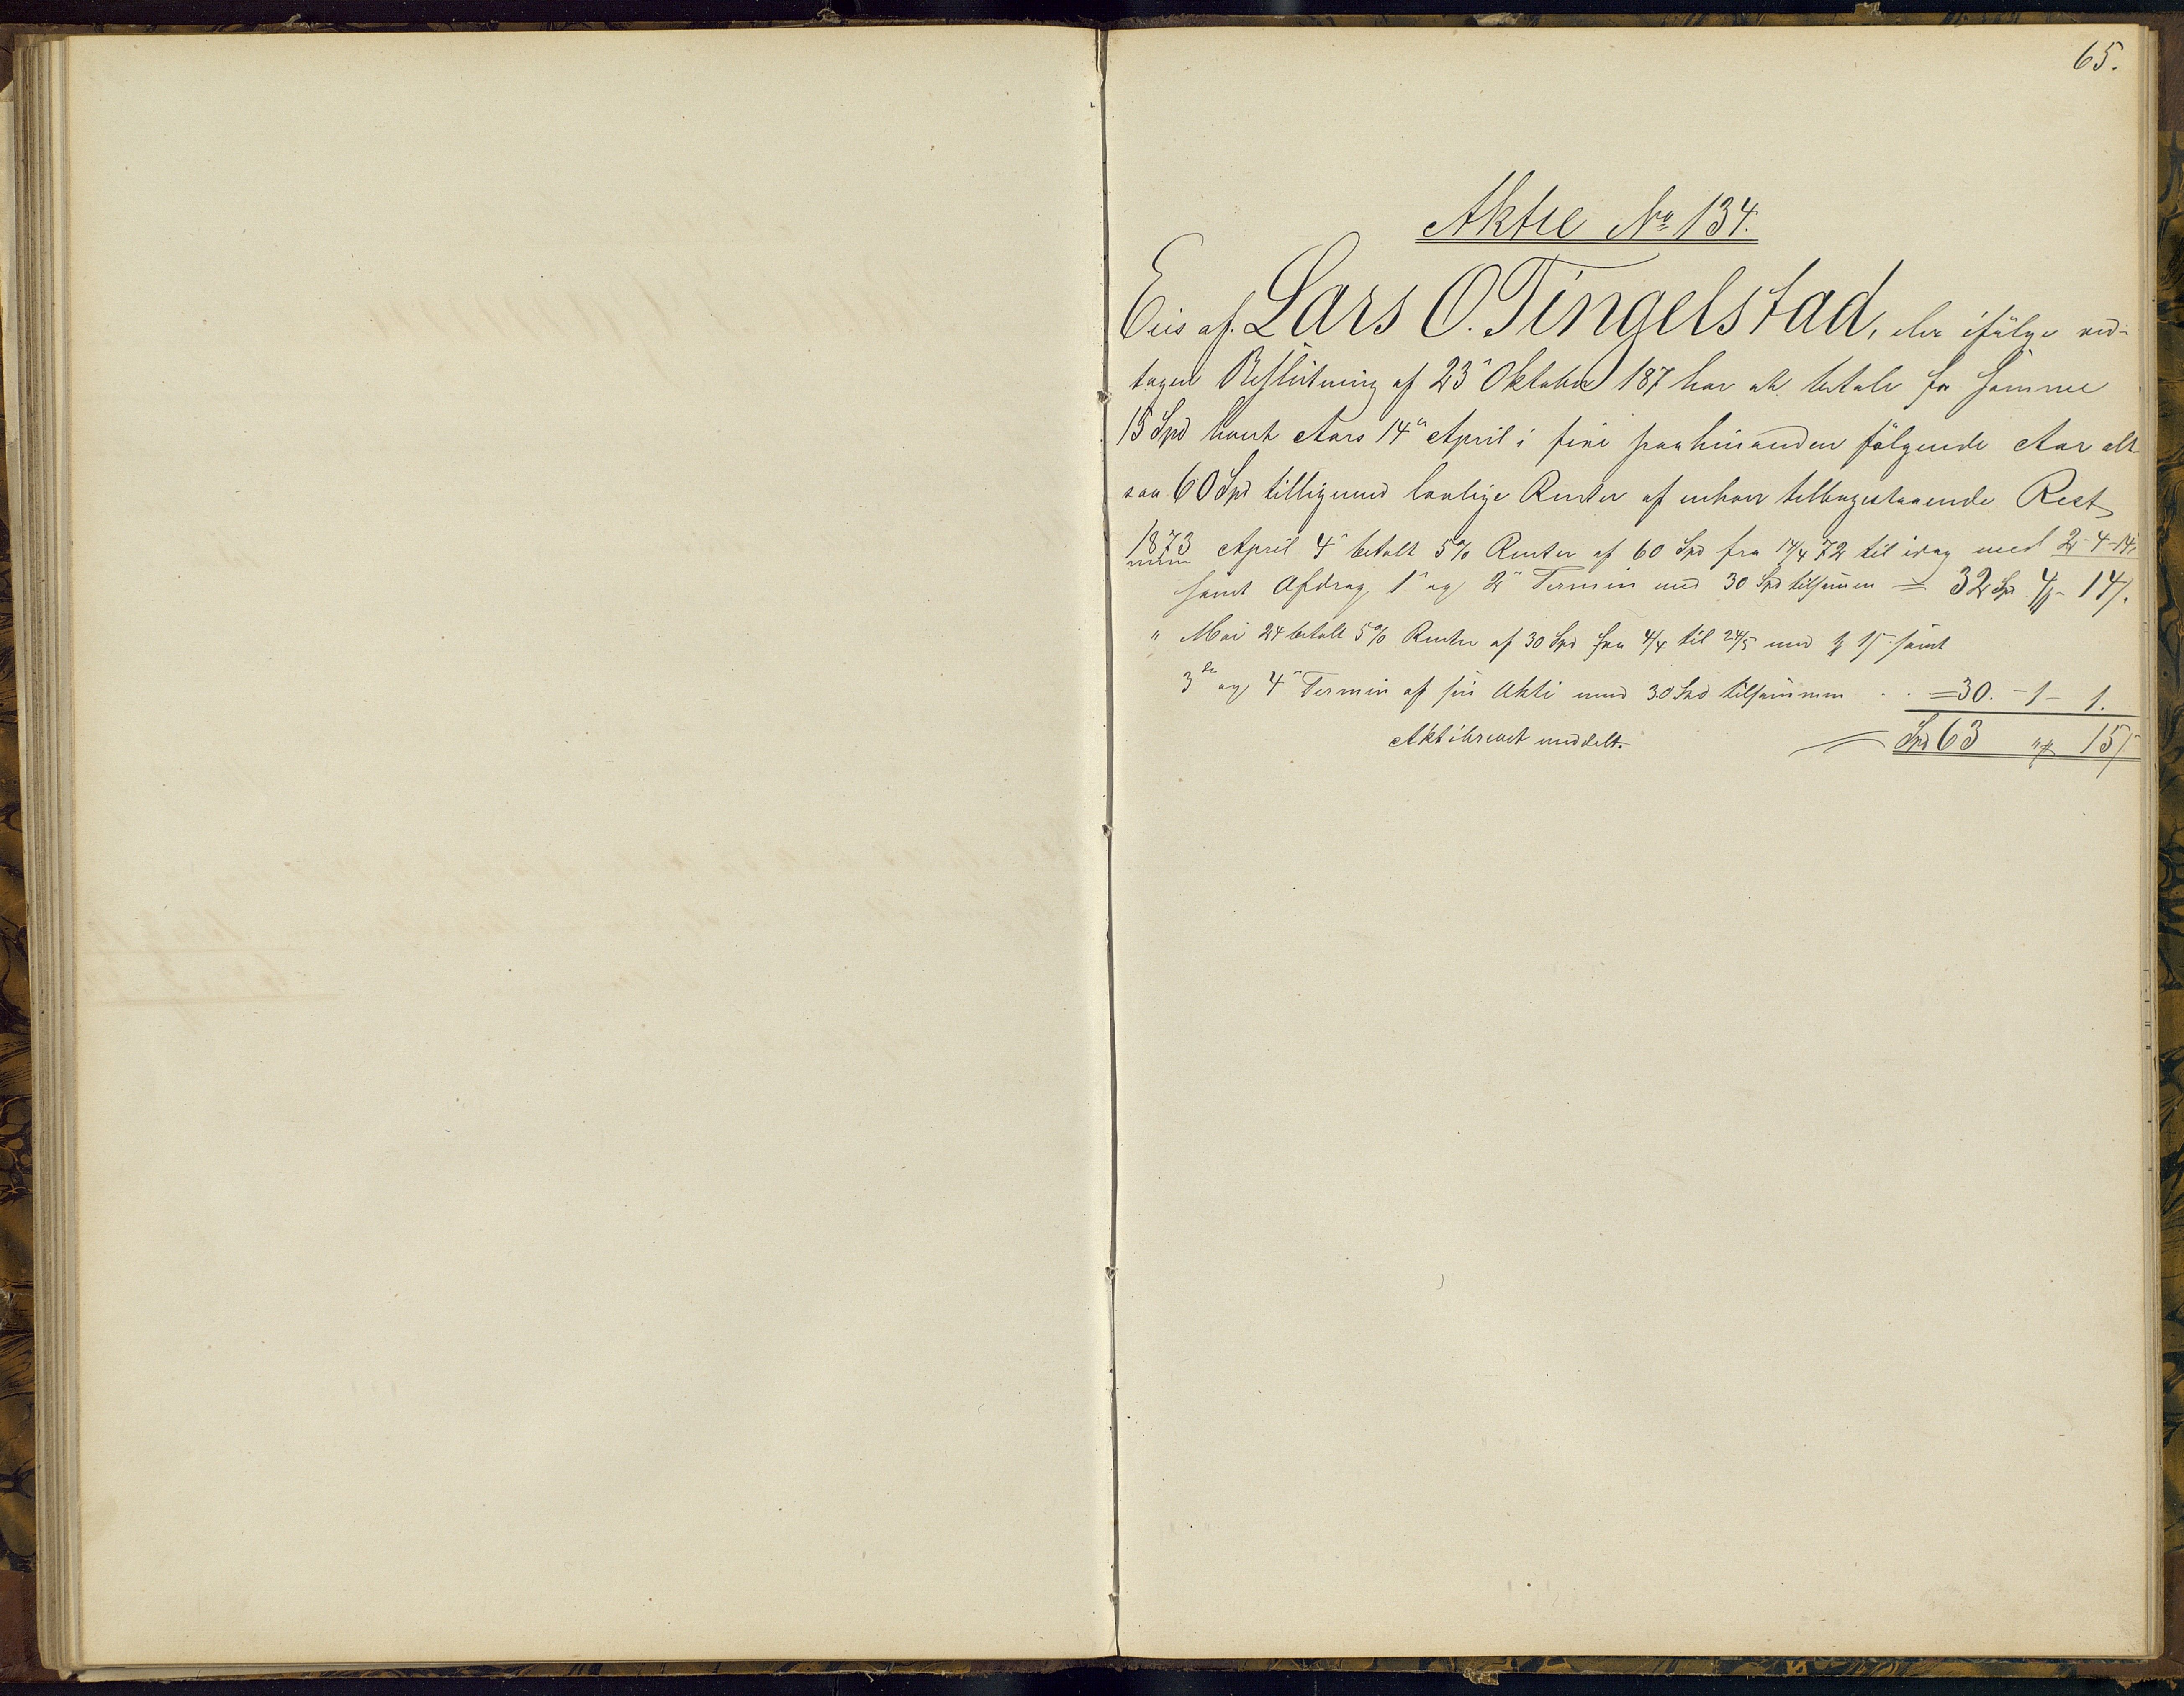 65.
Aktie No 134.
Eies af Lars O. Tingelstad, der ifölge ved-
tagen Beslutning af 23de Oktober 187 har at betale for samme
15 Spd hvert Aars 14de April i fire paahinanden fölgende Aar alt
saa 60 Spd tilligemed lovlige Renter af enhver tilbagestaaende Rest
1873 April 4de betalt 5% Renter af 60 Spd fra 14/4 72 til idag med 2-4-14
samt Afdrag 1ste og 2den Termin med 30 Spd tilsammen = 32 Spd 4 - 14.
" Mai 24 betalt 5% Renter af 30 Spd fra 4/4 til 24/5 med samt
3die og 4de Termin af sin Aktie med 30 Spd tilsammen . . = 30. - 1 - 1.
Aktiebrevet meddelt. Spd 63 " 15